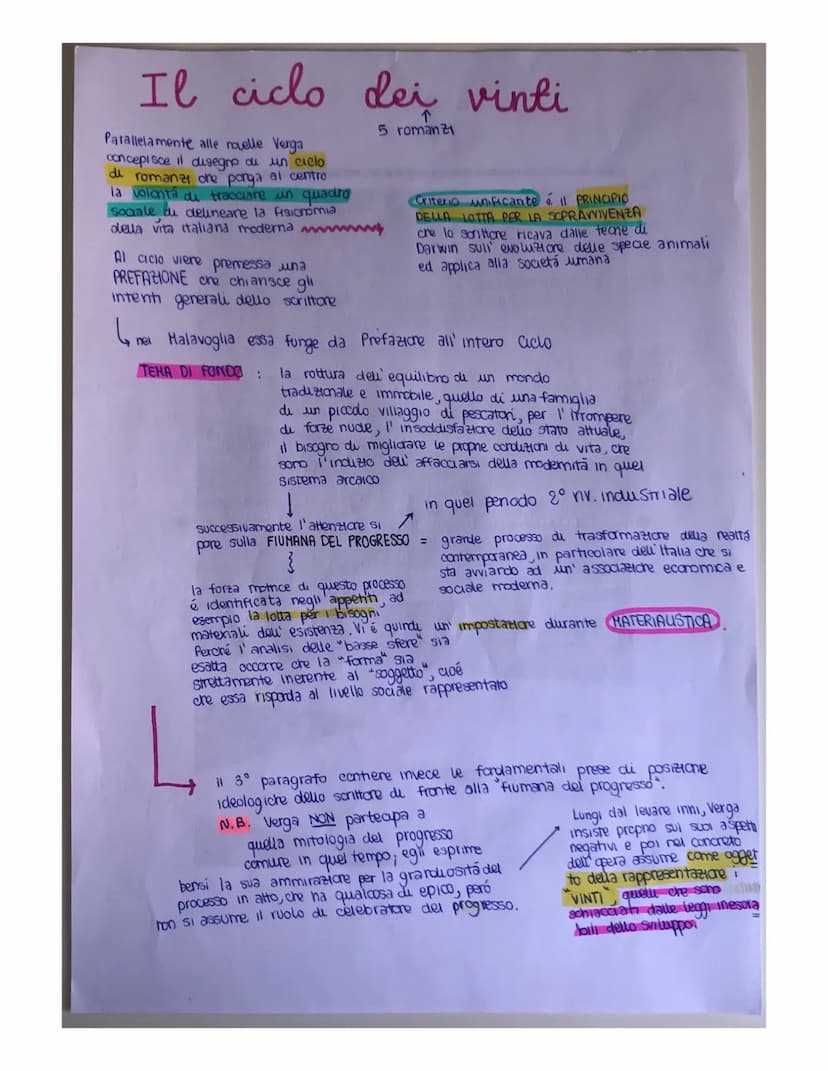 Il ciclo dei vinti
↑
5 romanzi
Parallelamente alle novelle Verga
concepisce il disegno di un ciclo
di romanzi che ponga al centro
la volontá di tracciare un quadro
sociale, di delineare la fisionomia
della vita italiana moderna
Criterio unificante é il PRINCIPIO
DELLA LOTTA PER LA SOPRAVVIVENZA
che lo scrittore ricava dalle teorie di
Darwin sull' evoluzione delle specie animali
ed applica alla societá umana
Al ciclo viene premessa una
PREFAZIONE che chiarisce gli
intenti generali dello scrittore
nei Malavoglia essa funge da Prefazione all' intero Ciclo
TEMA DI FONDO : la rottura dell' equilibro di un mondo
tradizionale e immobile, quello di una famiglia
di un piccolo villaggio di pescatori, per l' irrompere
di forze nuove, l' insoddisfazione dello stato attuale,
il bisogno di migliorare le proprie condizioni di vita, che
sono l'indizio dell' affacciarsi della modernitá in quel
sistema arcaico
in quel periodo 2° riv. industriale
successivamente l'attenzione si
pone sulla FIUMANA DEL PROGRESSO = grande processo di trasformazione della realtá
contemporanea, in particolare dell' Italia che si
sta avviando ad un' associazione economica e
sociale moderna.
la forza motrice di questo processo
é identificata negli appetiti, ad
esempio la lotta per i bisogni
materiali dell' esistenza. Vi é quindi un' impostazione durante MATERIALISTICA.
Perché l' analisi delle "basse sfere" sia
esatta occorre che la "forma" sia
strettamente inerente al "soggetto", cioé
che essa risponda al livello sociale rappresentato
il 3° paragrafo contiene invece le fondamentali prese di posizione
ideologiche dello scrittore di fronte alla "fiumana del progresso".
N.B. Verga NON partecipa a
quella mitologia del progresso
comune in quel tempo; egli esprime
bensì la sua ammirazione per la grandiositá del
processo in atto, che ha qualcosa di epico, peró
non si assume il ruolo di celebratore del progresso.
Lungi dal levare inni, Verga
insiste proprio sui suoi aspetti
negativi e poi nel concreto
dell' opera assume come ogget
to della rappresentazione i
"VINTI", quelli che sono
schiacciati dalle leggi inesora
bili dello sviluppo